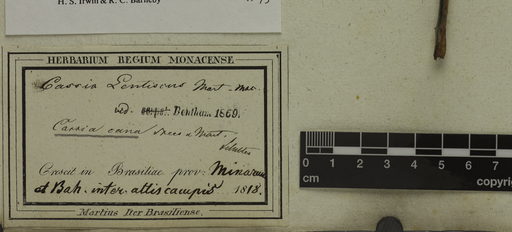 H. S. Irwin & R. C. Barneby
HERBARIUM REGIUM MONACENSE.
Cassia Lentiscus Mart. mss.
vid. Benthum. 1869.
Cassia cana Nees & Mart.
Crescit in Brasiliae prov: Minarum
et Bah. inter. altis campis 1818.
Martius Iter Brasiliense.
0 1 2 3 4 5 6 7
cm
copyrig